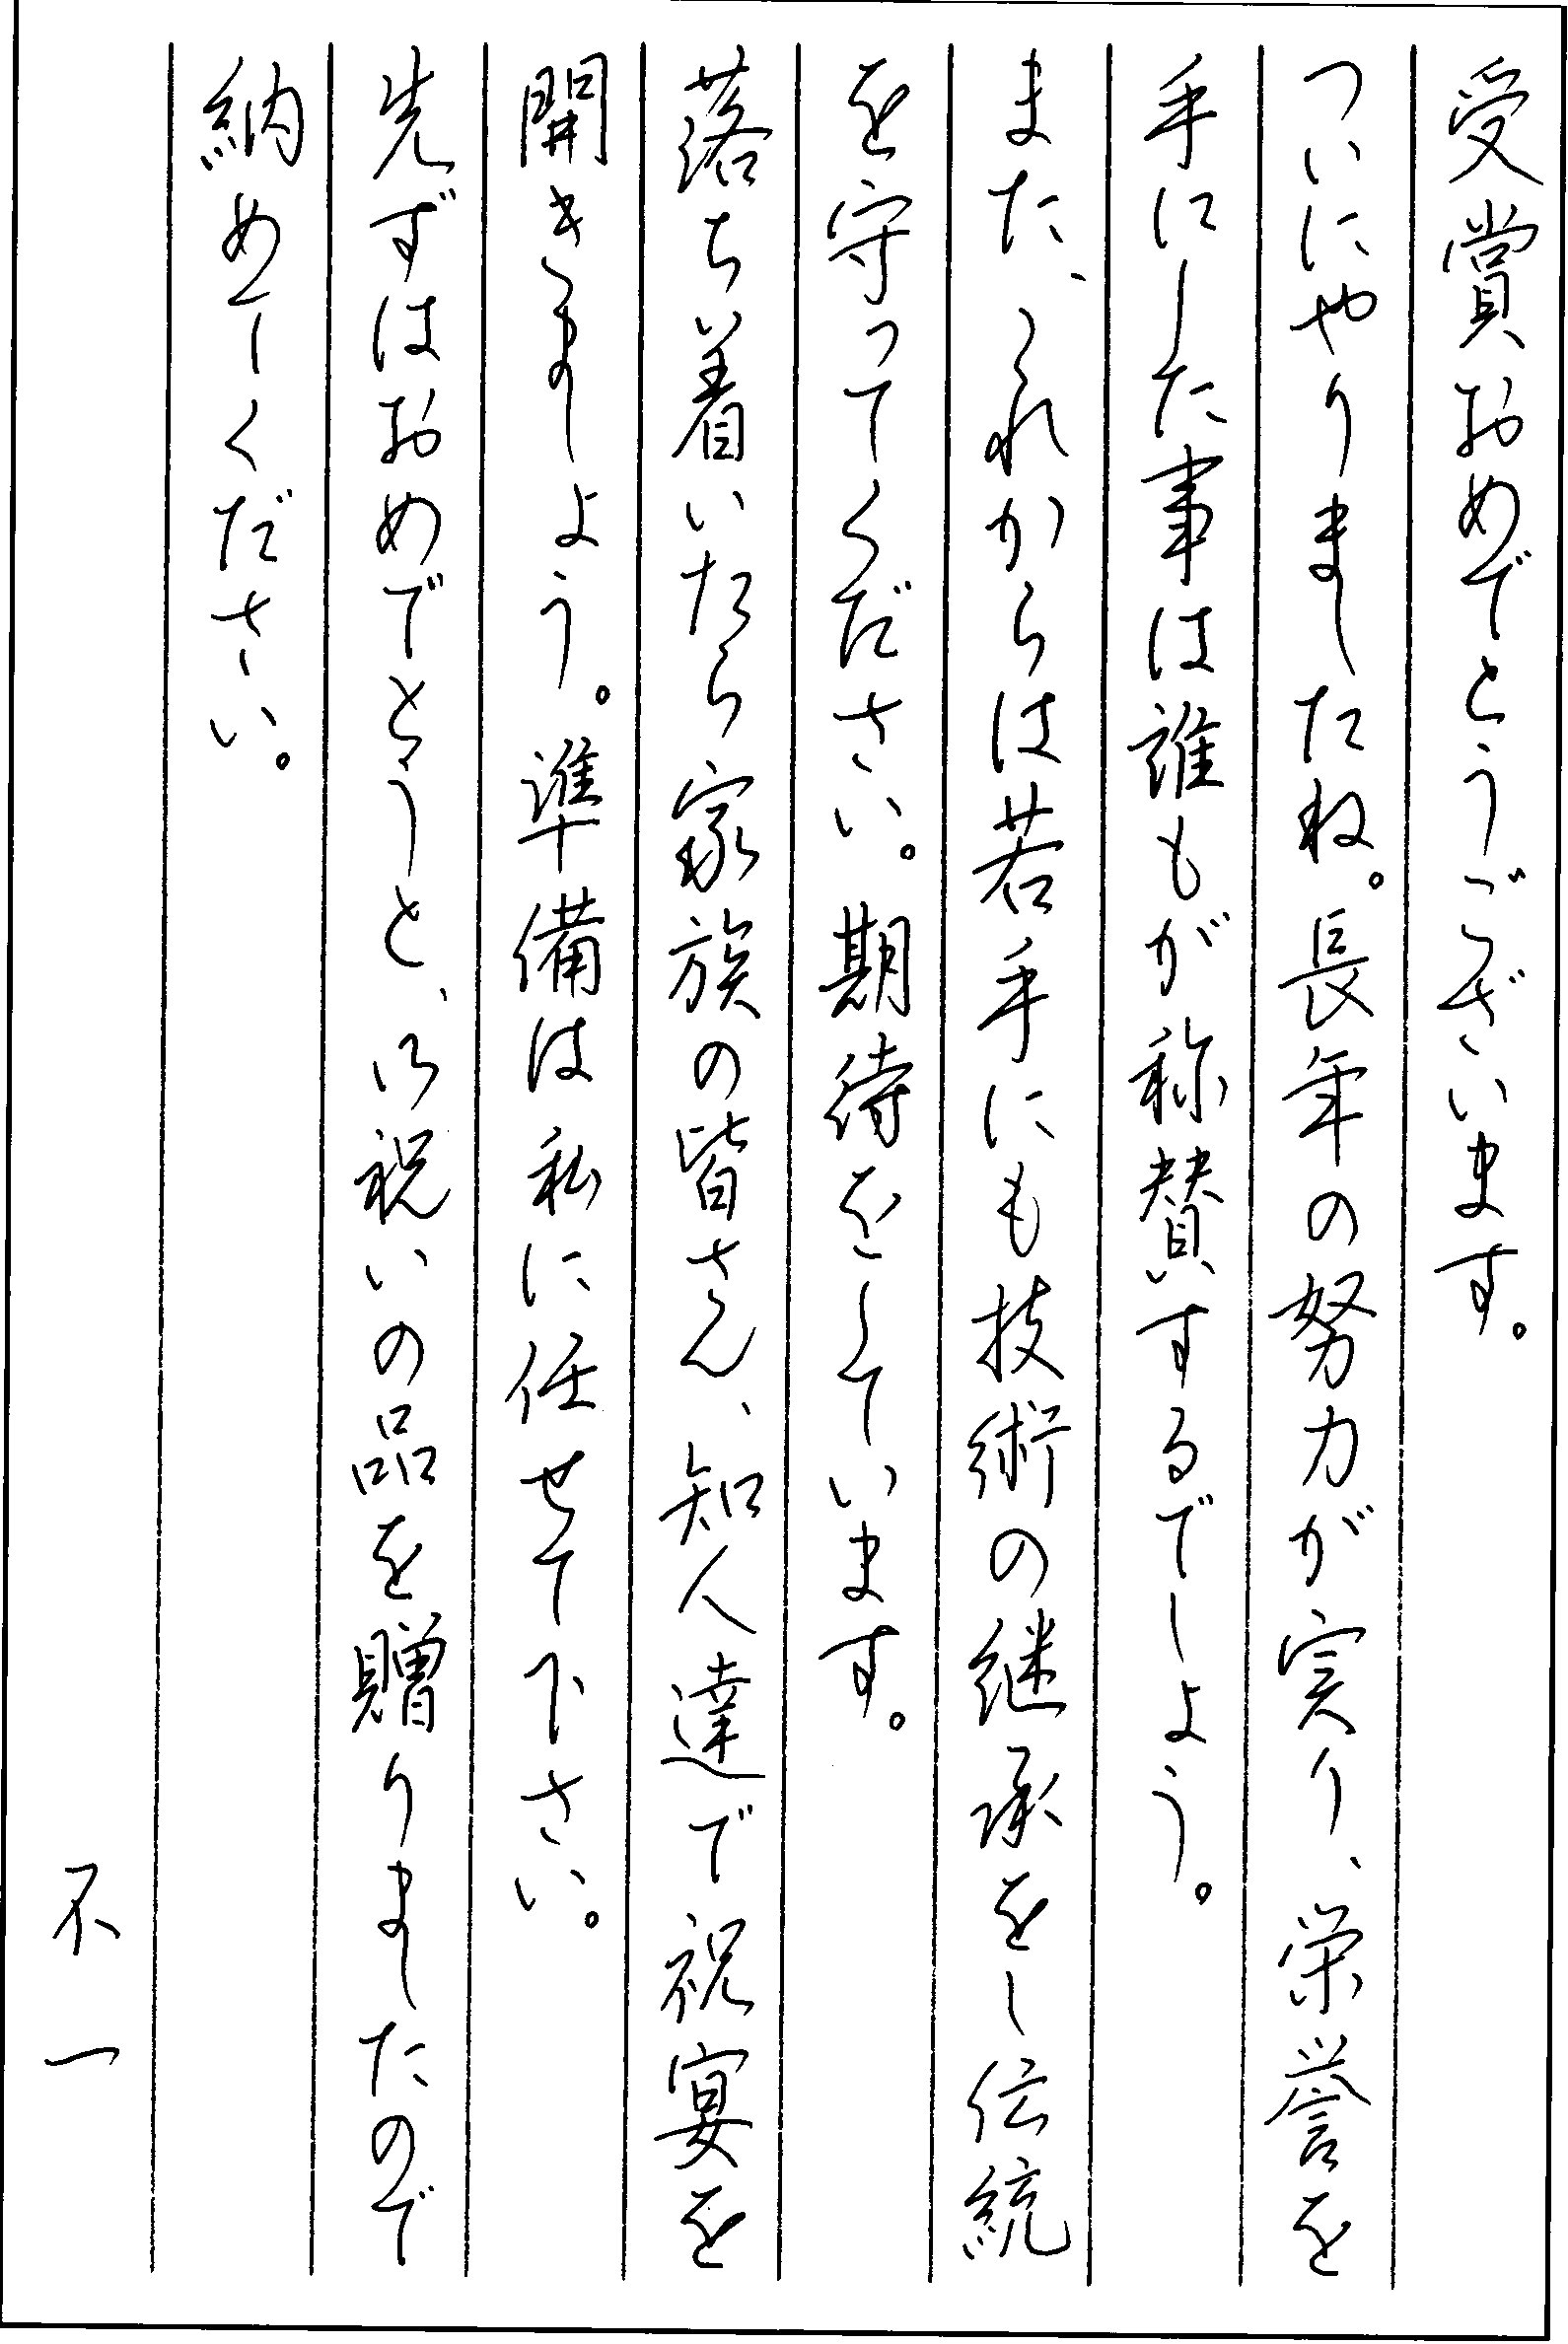 受賞おめでとうございます。
ついにやりましたね。長年の努力が実り、栄誉を
手にした事は誰もが称賛するでしょう。
また、これからは若手にも技術の継承をし伝統
を守ってください。期待をしています。
落ち着いたら家族の皆さん、知人達で祝宴を
開きましょう。準備は私に任せて下さい。
先ずはおめでとうと、お祝いの品を贈りましたので
納めてください。
不一